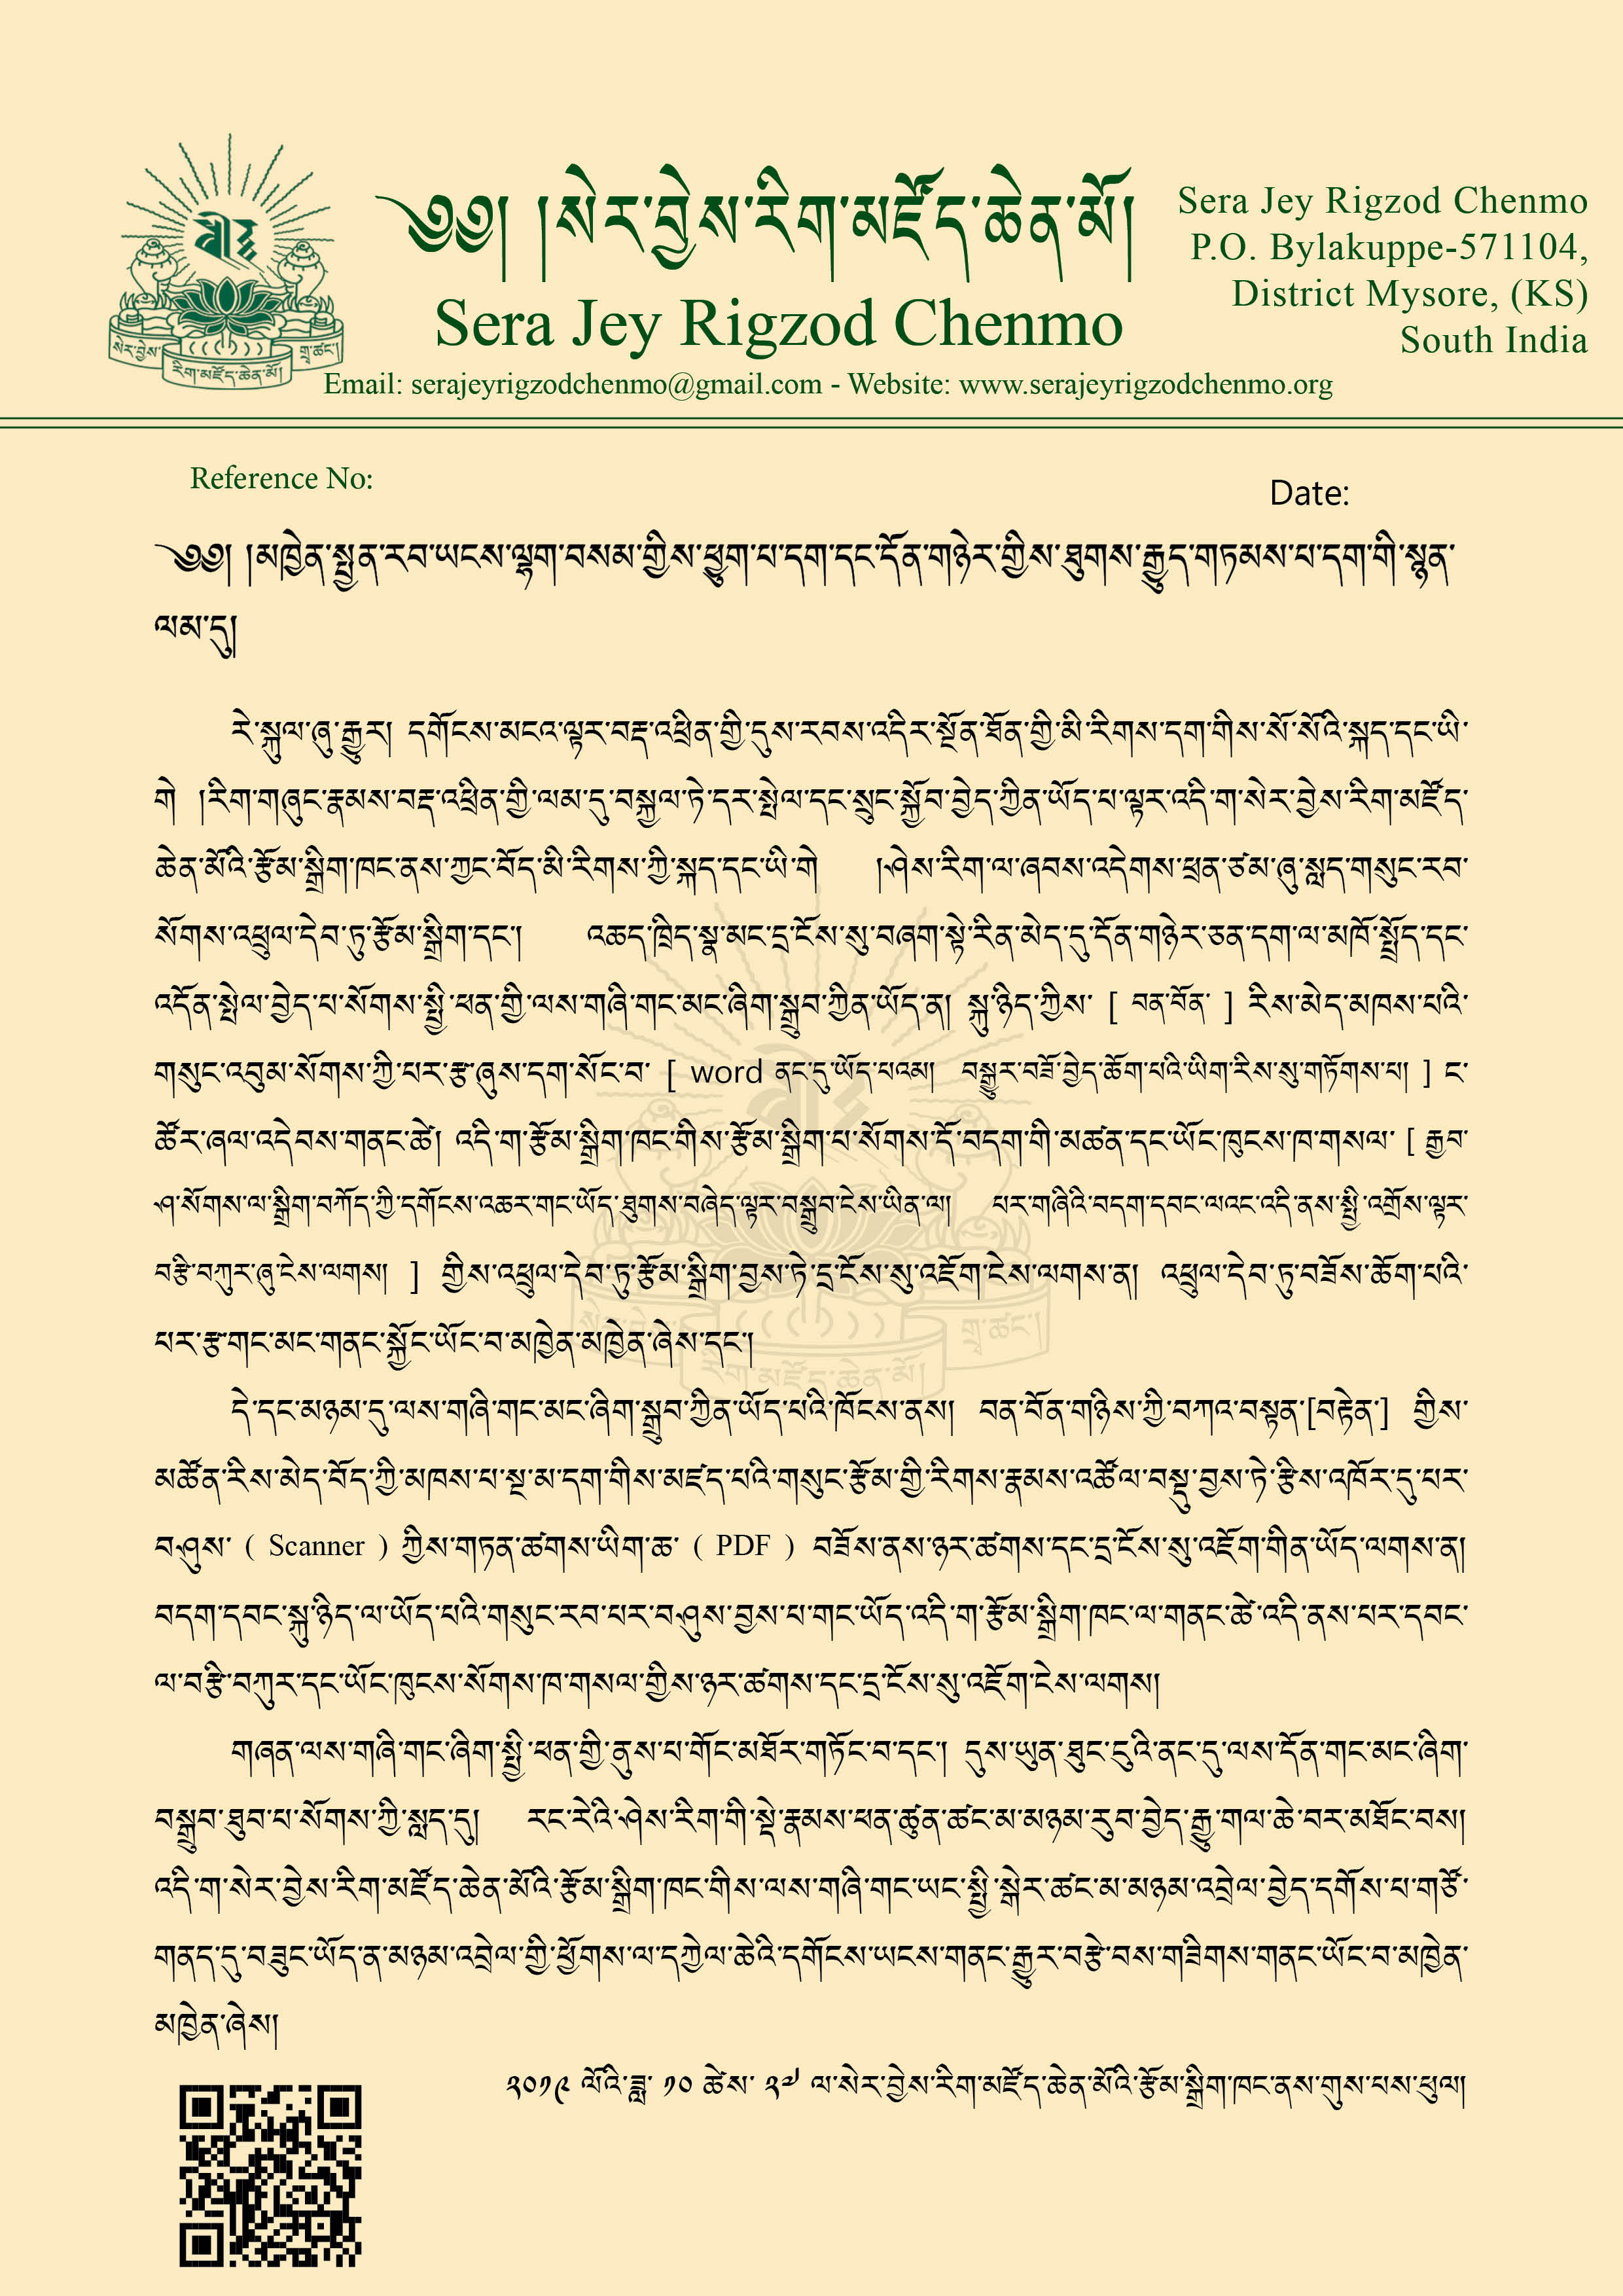 ༄༅། །སེར་བྱེས་རིག་མཛོད་ཆེན་མོ།
Sera Jey Rigzod Chenmo
Email: serajeyrigzodchenmo@gmail.com - Website: www.serajeyrigzodchenmo.org
Sera Jey Rigzod Chenmo
P.O. Bylakuppe-571104,
District Mysore, (KS)
South India
སེར་བྱེས་
རིག་མཛོད་ཆེན་མོ།
གྲྭ་ཚང་།
Reference No:
Date:
༄༅། །མཁྱེན་སྤྱན་རབ་ཡངས་ལྷག་བསམ་གྱིས་ཕྱུག་པ་དག་དང་དོན་གཉེར་གྱིས་ཐུགས་རྒྱུད་གཏམས་པ་དག་གི་སྙན་
ལམ་དུ།
རེ་སྐུལ་ཞུ་རྒྱུར། དགོངས་མངའ་ལྟར་བརྡ་འཕྲིན་གྱི་དུས་རབས་འདིར་སྔོན་ཐོན་གྱི་མི་རིགས་དག་གིས་སོ་སོའི་སྐད་དང་ཡི་
གེ །རིག་གཞུང་རྣམས་བརྡ་འཕྲིན་གྱི་ལམ་དུ་བསྐྱལ་ཏེ་དར་སྤེལ་དང་སྲུང་སྐྱོབ་བྱེད་ཀྱིན་ཡོད་པ་ལྟར་འདི་ག་སེར་བྱེས་རིག་མཛོད་
ཆེན་མོའི་རྩོམ་སྒྲིག་ཁང་ནས་ཀྱང་བོད་མི་རིགས་ཀྱི་སྐད་དང་ཡི་གེ །ཤེས་རིག་ལ་ཞབས་འདེགས་ཕྲན་ཙམ་ཞུ་སླད་གསུང་རབ་
སོགས་འཕྲུལ་དེབ་ཏུ་རྩོམ་སྒྲིག་དང་། འཆད་ཁྲིད་སྣ་མང་དྲ་ངོས་སུ་བཞག་སྟེ་རིན་མེད་དུ་དོན་གཉེར་ཅན་དག་ལ་མཁོ་སྤྲོད་དང་
འདོན་སྤེལ་བྱེད་པ་སོགས་སྤྱི་ཕན་གྱི་ལས་གཞི་གང་མང་ཞིག་སྒྲུབ་ཀྱིན་ཡོད་ན། སྐུ་ཉིད་ཀྱིས་ [ བན་བོན་ ] རིས་མེད་མཁས་པའི་
གསུང་འབུམ་སོགས་ཀྱི་པར་རྩ་ཞུས་དག་སོང་བ་ [ word ནང་དུ་ཡོད་པའམ། བསྒྱུར་བཟོ་བྱེད་ཆོག་པའི་ཡིག་རིས་སུ་གཏོགས་པ། ] ང་
ཚོར་ཞལ་འདེབས་གནང་ཚེ། འདི་ག་རྩོམ་སྒྲིག་ཁང་གིས་རྩོམ་སྒྲིག་པ་སོགས་དོ་བདག་གི་མཚན་དང་ཡོང་ཁུངས་ཁ་གསལ་ [ རྒྱབ་
ཤ་སོགས་ལ་སྒྲིག་བཀོད་ཀྱི་དགོངས་འཆར་གང་ཡོད་ཐུགས་བཞེད་ལྟར་བསྒྲུབ་ངེས་ཡིན་ལ། པར་གཞིའི་བདག་དབང་ལའང་འདི་ནས་སྤྱི་འགྲོས་ལྟར་
བརྩི་བཀུར་ཞུ་ངེས་ལགས། ] གྱིས་འཕྲུལ་དེབ་ཏུ་རྩོམ་སྒྲིག་བྱས་ཏེ་དྲ་ངོས་སུ་འཇོག་ངེས་ལགས་ན། འཕྲུལ་དེབ་ཏུ་བཟོས་ཆོག་པའི་
པར་རྩ་གང་མང་གནང་སྐྱོང་ཡོང་བ་མཁྱེན་མཁྱེན་ཞེས་དང་།
དེ་དང་མཉམ་དུ་ལས་གཞི་གང་མང་ཞིག་སྒྲུབ་ཀྱིན་ཡོད་པའི་ཁོངས་ནས། བན་བོན་གཉིས་ཀྱི་བཀའ་བསྟན་[བརྟེན་] གྱིས་
མཚོན་རིས་མེད་བོད་ཀྱི་མཁས་པ་སྔ་མ་དག་གིས་མཛད་པའི་གསུང་རྩོམ་གྱི་རིགས་རྣམས་འཚོལ་བསྡུ་བྱས་ཏེ་རྩིས་འཁོར་དུ་པར་
བཤུས་ ( Scanner ) ཀྱིས་གཏན་ཚགས་ཡིག་ཆ་ ( PDF ) བཟོས་ནས་ཉར་ཚགས་དང་དྲ་ངོས་སུ་འཇོག་གིན་ཡོད་ལགས་ན།
བདག་དབང་སྐུ་ཉིད་ལ་ཡོད་པའི་གསུང་རབ་པར་བཤུས་བྱས་པ་གང་ཡོད་འདི་ག་རྩོམ་སྒྲིག་ཁང་ལ་གནང་ཚེ་འདི་ནས་པར་དབང་
ལ་བརྩི་བཀུར་དང་ཡོང་ཁུངས་སོགས་ཁ་གསལ་གྱིས་ཉར་ཚགས་དང་དྲ་ངོས་སུ་འཇོག་ངེས་ལགས།
གཞན་ལས་གཞི་གང་ཞིག་སྤྱི་ཕན་གྱི་ནུས་པ་གོང་མཐོར་གཏོང་བ་དང་། དུས་ཡུན་ཐུང་ངུའི་ནང་དུ་ལས་དོན་གང་མང་ཞིག་
བསྒྲུབ་ཐུབ་པ་སོགས་ཀྱི་སླད་དུ། རང་རེའི་ཤེས་རིག་གི་སྡེ་རྣམས་ཕན་ཚུན་ཚང་མ་མཉམ་རུབ་བྱེད་རྒྱུ་གལ་ཆེ་བར་མཐོང་བས།
འདི་ག་སེར་བྱེས་རིག་མཛོད་ཆེན་མོའི་རྩོམ་སྒྲིག་ཁང་གིས་ལས་གཞི་གང་ཡང་སྤྱི་སྒེར་ཚང་མ་མཉམ་འབྲེལ་བྱེད་དགོས་པ་གཙོ་
གནད་དུ་བཟུང་ཡོད་ན་མཉམ་འབྲེལ་གྱི་ཕྱོགས་ལ་དཀྱེལ་ཆེའི་དགོངས་ཡངས་གནང་རྒྱུར་བརྩེ་བས་གཟིགས་གནང་ཡོང་བ་མཁྱེན་
མཁྱེན་ཞེས།
༢༠༡༩ ལོའི་ཟླ་ ༡༠ ཚེས་ ༢༧ ལ་སེར་བྱེས་རིག་མཛོད་ཆེན་མོའི་རྩོམ་སྒྲིག་ཁང་ནས་གུས་པས་ཕུལ།